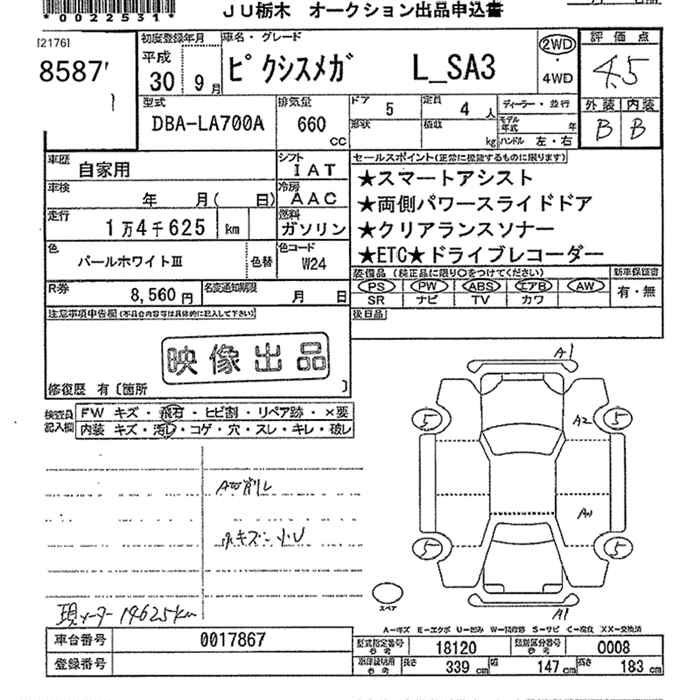 *0022531*
JU栃木 オークション出品申込書
[2176]
8587
初度登録年月
平成
30 9月
車名・グレード
ピクシスメガ L_SA3
2WD
・
4WD
評価点
4.5
外装 内装
B B
型式
DBA-LA700A
排気量
660
cc
ドア 5
定員 4人
形状
積載 kg
ディーラー・並行
モデル年式 年
ハンドル 左・右
車歴
自家用
シフト
IAT
セールスポイント(正常に機能するものに限ります)
★スマートアシスト
★両側パワースライドドア
★クリアランスソナー
★ETC★ドライブレコーダー
車検
年 月( 日)
冷房
AAC
走行
1万4千625 km
燃料
ガソリン
色
パールホワイトⅢ
色替
色コード
W24
装備品(純正品に限り○をつけてください)
PS PW ABS エアB AW
SR ナビ TV カワ
新車保証書
有・無
R券
8,560円
名変通知期限
月 日
後日品
注意事項申告欄(不具合内容等は具体的に記入して下さい)
映像出品
修復歴 有 〔箇所 〕
検査員
記入欄
FW キズ・飛石・ヒビ割・リペア跡・×要
内装 キズ・汚れ・コゲ・穴・スレ・キレ・破レ
A1
5
A2
5
5
5
スペア
A1
現メーター 14625km
A-キズ E-エクボ U-凹み W-補修跡 S-サビ C-腐食 XX-交換済
車台番号 0017867
登録番号
型式指定番号
参考
18120
類別区分番号
参考
0008
長さ 339 cm
幅 147 cm
高さ 183 cm